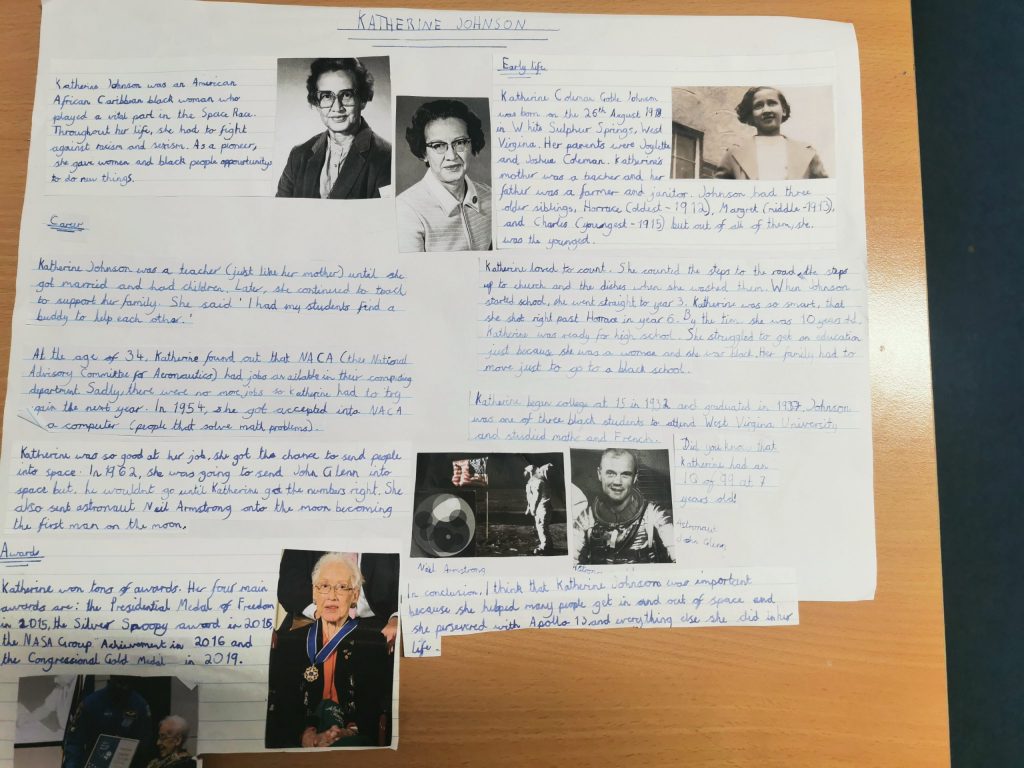 KATHERINE JOHNSON
Katherine Johnson was an American
African Caribbean black woman who
played a vital part in the Space Race.
Throughout her life, she had to fight
against racism and sexism. As a pioneer,
she gave women and black people opportunitys
to do new things.
Early life
Katherine Coleman Goble Johnson
was born on the 26th August 1918
in White Sulphur Springs, West
Virgina. Her parents were Joylette
and Joshua Coleman. Katherine's
mother was a teacher and her
father was a farmer and janitor. Johnson had three
older siblings, Horrace (oldest - 1912), Margret (middle - 1913),
and Charles (youngest - 1915) but out of all of them, she
was the youngest.
Katherine loved to count. She counted the steps to the road, the steps
up to church and the dishes when she washed them. When Johnson
started school, she went straight to year 3. Katherine was so smart, that
she shot right past Horrace in year 6. By the time she was 10 years old,
Katherine was ready for high school. She struggled to get an education
just because she was a woman and she was black. Her family had to
move just to go to a black school.
Katherine begun college at 15 in 1932 and graduated in 1937. Johnson
was one of three black students to attend West Virgina University
and studied maths and French.
Did you know that
Katherine had an
IQ of 99 at 7
years old!
Astronaut
John Glenn
Career
Katherine Johnson was a teacher (just like her mother) until she
got married and had children. Later, she continued to teach
to support her family. She said 'I had my students find a
buddy to help each other.'
At the age of 34, Katherine found out that NACA (the National
Advisory Committee for Aeronautics) had jobs available in their computing
department. Sadly, there were no more jobs so Katherine had to try
again the next year. In 1954, she got accepted into NACA
a computer (people that solve math problems).
Katherine was so good at her job, she got the chance to send people
into space. In 1962, she was going to send John Glenn into
space but, he wouldnt go until Katherine got the numbers right. She
also sent astronaut Neil Armstrong onto the moon becoming
the first man on the moon.
Neil Armstrong
Awards
Katherine won tons of awards. Her four main
awards are: the Presidential Medal of Freedom
in 2015, the Silver Snoopy award in 2015,
the NASA Group Achievement in 2016 and
the Congressional Gold Medal in 2019.
In conclusion, I think that Katherine Johnson was important
because she helped many people get in and out of space and
she persevered with Apollo 13 and everything else she did in her
life.